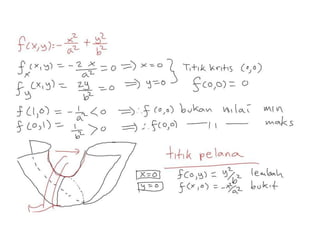 f(x,y) = -x²/a² + y²/b²
fₓ(x,y) = -2x/a² = 0 ⟹ x=0 } Titik kritis (0,0)
f_y(x,y) = 2y/b² = 0 ⟹ y=0 } f(0,0) = 0
f(1,0) = -1/a² < 0 ⟹ ∴ f(0,0) bukan nilai min
f(0,1) = 1/b² > 0 ⟹ ∴ f(0,0) —— 11 —— maks
titik pelana
x=0 f(0,y) = y²/b² lembah
y=0 f(x,0) = -x²/a² bukit